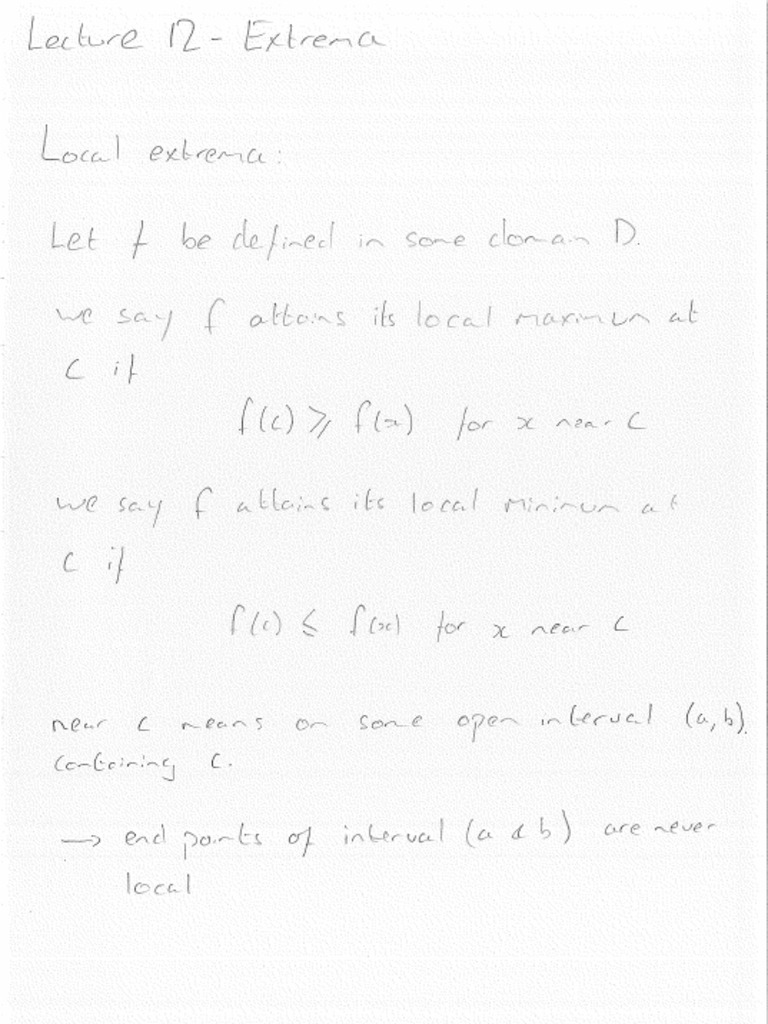 Lecture 12 - Extrema
Local extrema:
Let f be defined in some domain D.
we say f attains its local maximum at
c if
f(c) ⩾ f(x) for x near c
we say f attains its local minimum at
c if
f(c) ≤ f(x) for x near c
near c means on some open interval (a,b).
containing c.
→ end points of interval (a & b) are never
local